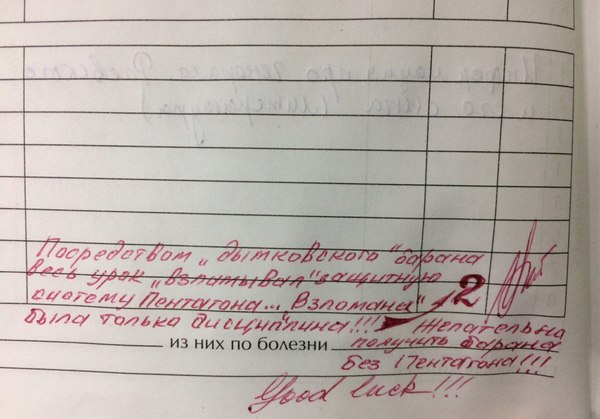 Посредством "дымковского" барана
весь урок "взламывал" защитную
систему Пентагона... Взломана"
была только дисциплина!!!
2
Желательно
из них по болезни
получить барана
без Пентагона!!!
Good luck!!!